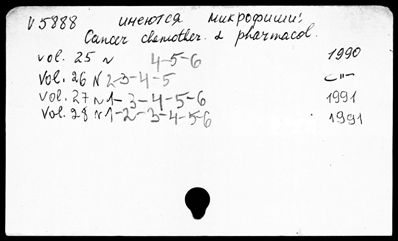 V5888 имеются микрофиши:
Cancer chemother. & pharmacol.
vol. 25 N 4-5-6 1990
Vol. 26 N 2-3-4-5 -"-
Vol. 27 N 1-3-4-5-6 1991
Vol. 28 N 1-2-3-4-5-6 1991